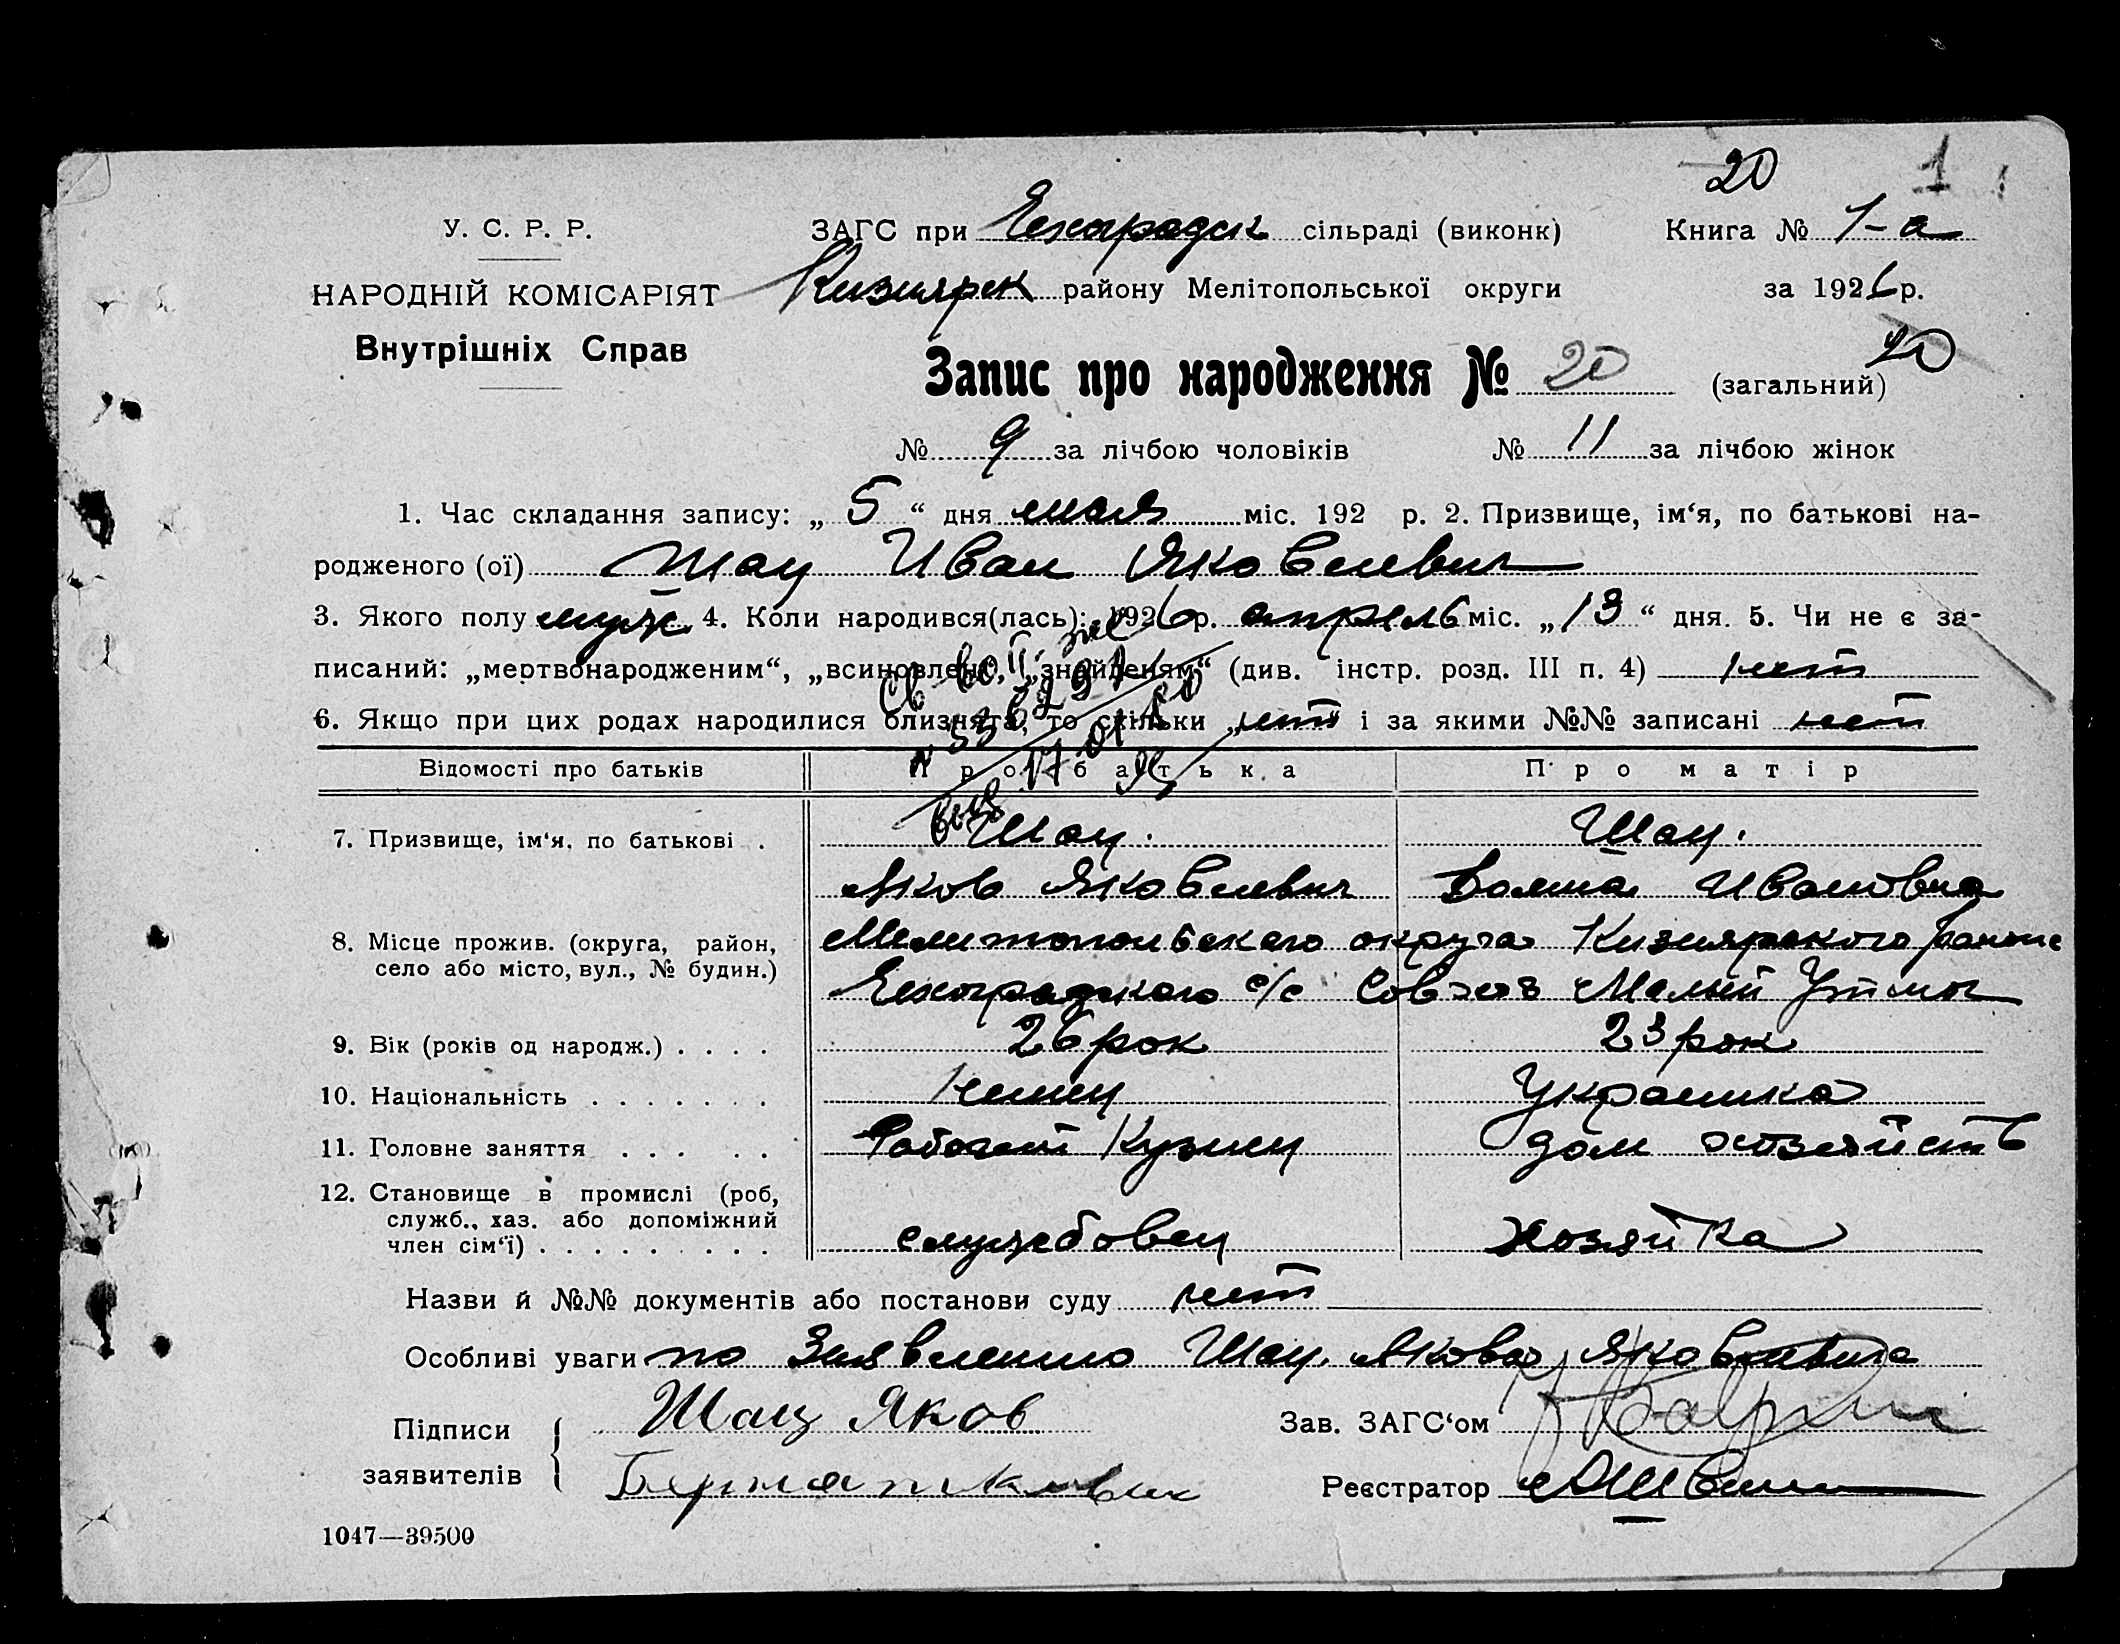 20 1
У. С. Р. Р. ЗАГС при сільраді (виконк) Книга № 1-а
НАРОДНІЙ КОМІСАРІЯТ Кизиярск району Мелітопольської округи за 1926 р.
Внутрішніх Справ
Запис про народження № 20 (загальний) 20
№ 9 за лічбою чоловіків № 11 за лічбою жінок
1. Час складання запису: „ 5 “ дня мая міс. 192 р. 2. Призвище, ім‘я, по батькові на-
родженого (ої) Шац Иван Яковлевич
3. Якого полу муж. 4. Коли народився(лась): 1926 р. апрель міс. „ 13 “ дня. 5. Чи не є за-
писаний: „мертвонародженим“, „всиновлено“, „знайденям“ (див. інстр. розд. III п. 4) нет
6. Якщо при цих родах народилися близнята, то скільки „нет“ і за якими №№ записані нет
Відомості про батьків Про батька Про матір
7. Призвище, ім‘я, по батькові . Шац. Шац.
Яков Яковлевич Ивановна
8. Місце прожив. (округа, район, Мелитопольского округа Кизиярского района
село або місто, вул., № будин.) с/с Совхоз Малый Утлюг
9. Вік (років од народж.) . . . . 26 рок 23 рок
10. Національність . . . . . . . Немец Украинка
11. Головне заняття . . . . . Рабочий Кузнец дом хозяйств
12. Становище в промислі (роб,
служб., хаз. або допоміжний
член сім‘ї) . . . . . . . . . служебовец хозяйка
Назви й №№ документів або постанови суду нет
Особливі уваги по Заявлению Шац Якова Яковлевича
Підписи Шац Яков Зав. ЗАГС‘ом
заявителів Реєстратор
1047—39500